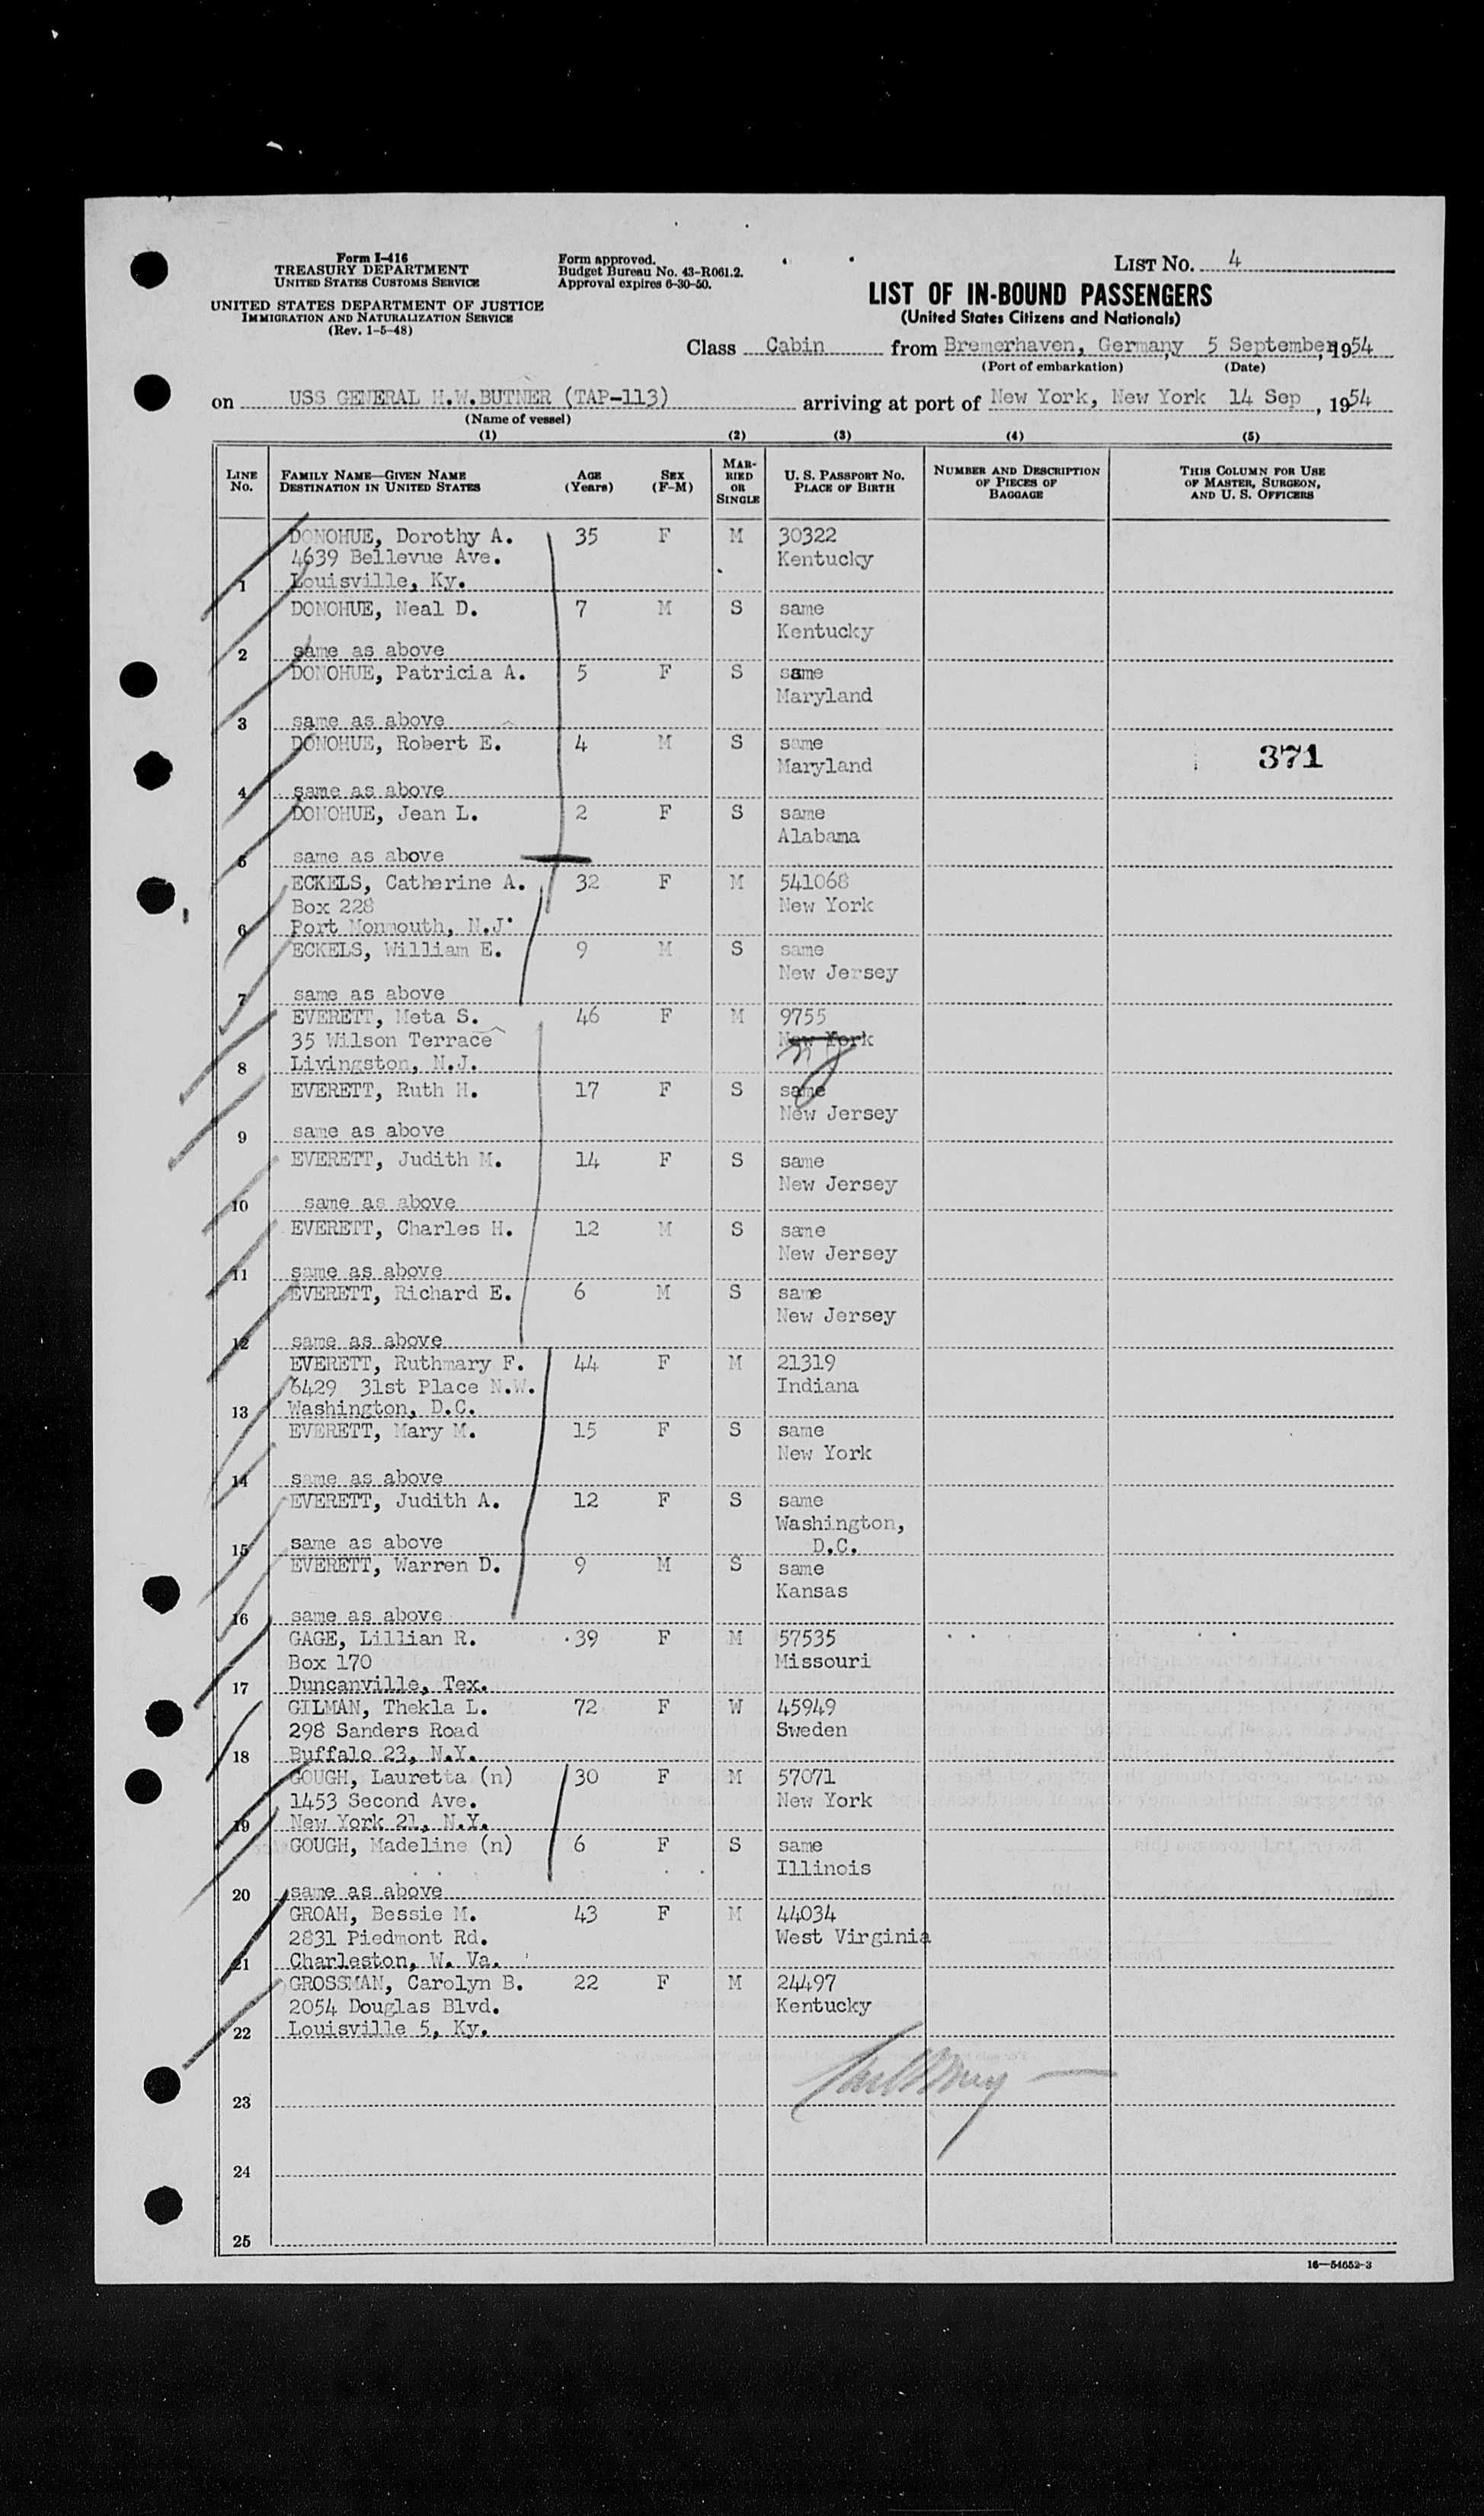 Form I-416
TREASURY DEPARTMENT
UNITED STATES CUSTOMS SERVICE
UNITED STATES DEPARTMENT OF JUSTICE
IMMIGRATION AND NATURALIZATION SERVICE
(Rev. 1-5-48)
Form approved.
Budget Bureau No. 43-R061.2.
Approval expires 6-30-50.
LIST NO. 4
LIST OF IN-BOUND PASSENGERS
(United States Citizens and Nationals)
Class Cabin from Bremerhaven, Germany, 5 September, 1954
(Port of embarkation) (Date)
on USS GENERAL H.W.BUTNER (TAP-113) arriving at port of New York, New York 14 Sep, 1954
(Name of vessel)
(1) (2) (3) (4) (5)
LINE NO. FAMILY NAME—GIVEN NAME DESTINATION IN UNITED STATES AGE (Years) SEX (F-M) MARRIED OR SINGLE U. S. PASSPORT NO. PLACE OF BIRTH NUMBER AND DESCRIPTION OF PIECES OF BAGGAGE THIS COLUMN FOR USE OF MASTER, SURGEON, AND U. S. OFFICERS
DONOHUE, Dorothy A. 35 F M 30322
4639 Bellevue Ave. Kentucky
1 Louisville, Ky.
DONOHUE, Neal D. 7 M S same
Kentucky
2 same as above
DONOHUE, Patricia A. 5 F S same
Maryland
3 same as above
DONOHUE, Robert E. 4 M S same
Maryland 371
4 same as above
DONOHUE, Jean L. 2 F S same
Alabama
5 same as above
ECKELS, Catherine A. 32 F M 541068
Box 228 New York
6 Port Monmouth, N.J.
ECKELS, William E. 9 M S same
New Jersey
7 same as above
EVERETT, Meta S. 46 F M 9755
35 Wilson Terrace New York
8 Livingston, N.J. nj
EVERETT, Ruth H. 17 F S same
New Jersey
9 same as above
EVERETT, Judith M. 14 F S same
New Jersey
10 same as above
EVERETT, Charles H. 12 M S same
New Jersey
11 same as above
EVERETT, Richard E. 6 M S same
New Jersey
12 same as above
EVERETT, Ruthmary F. 44 F M 21319
6429 31st Place N.W. Indiana
13 Washington, D.C.
EVERETT, Mary M. 15 F S same
New York
14 same as above
EVERETT, Judith A. 12 F S same
Washington,
15 same as above D.C.
EVERETT, Warren D. 9 M S same
Kansas
16 same as above
GAGE, Lillian R. 39 F M 57535
Box 170 Missouri
17 Duncanville, Tex.
GILMAN, Thekla L. 72 F W 45949
298 Sanders Road Sweden
18 Buffalo 23, N.Y.
GOUGH, Lauretta (n) 30 F M 57071
1453 Second Ave. New York
19 New York 21, N.Y.
GOUGH, Madeline (n) 6 F S same
Illinois
20 same as above
GROAH, Bessie M. 43 F M 44034
2831 Piedmont Rd. West Virginia
21 Charleston, W. Va.
GROSSMAN, Carolyn B. 22 F M 24497
2054 Douglas Blvd. Kentucky
22 Louisville 5, Ky.
23
24
25
16—54652-3